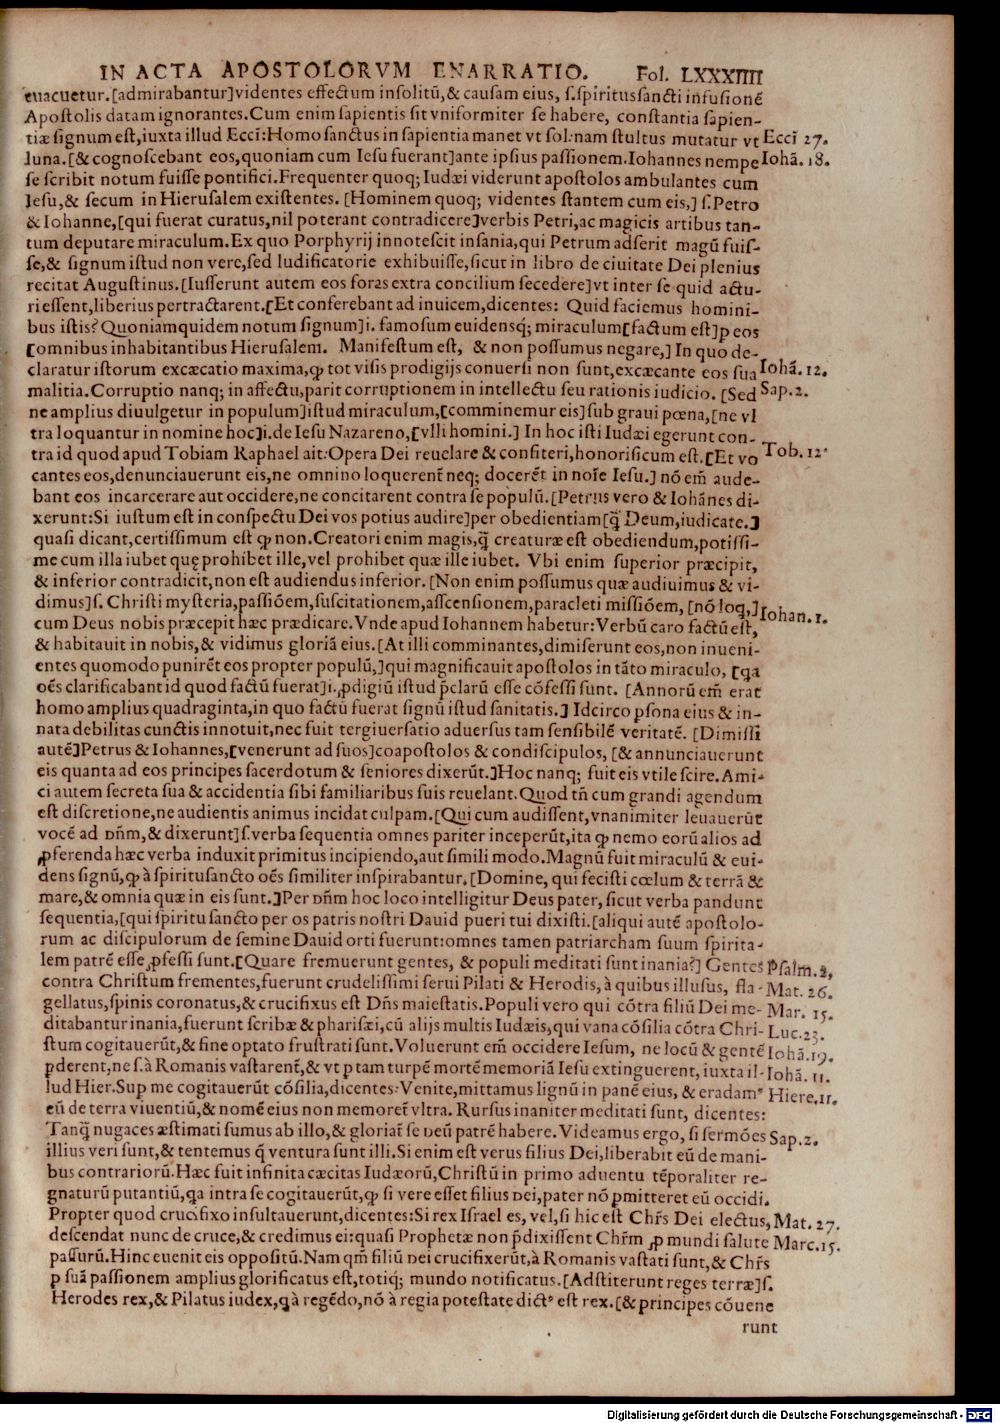 IN ACTA APOSTOLORVM ENARRATIO. Fol. LXXXIIII
euacuetur.[admirabantur]videntes effectum insolitũ,& causam eius, s.spiritussancti infusionẽ
Apostolis datam ignorantes.Cum enim sapientis sit vniformiter se habere, constantia sapien-
tiæ signum est,iuxta illud Eccĩ:Homo sanctus in sapientia manet vt sol:nam stultus mutatur vt Eccĩ 27.
luna.[& cognoscebant eos,quoniam cum Iesu fuerant]ante ipsius passionem.Iohannes nempe Iohã. 18.
se scribit notum fuisse pontifici.Frequenter quoq; Iudæi viderunt apostolos ambulantes cum
Iesu,& secum in Hierusalem existentes. [Hominem quoq; videntes stantem cum eis,] s.Petro
& Iohanne,[qui fuerat curatus,nil poterant contradicere]verbis Petri,ac magicis artibus tan-
tum deputare miraculum.Ex quo Porphyrij innotescit insania,qui Petrum adserit magũ fuis-
se,& signum istud non vere,sed ludificatorie exhibuisse,sicut in libro de ciuitate Dei plenius
recitat Augustinus. [Iusserunt autem eos foras extra concilium secedere]vt inter se quid actu-
ri essent,liberius pertractarent.[Et conferebant ad inuicem,dicentes: Quid faciemus homini-
bus istis? Quoniamquidem notum signum]i. famosum euidensq; miraculum[factum est]ꝑ eos
[omnibus inhabitantibus Hierusalem. Manifestum est, & non possumus negare,] In quo de-
claratur istorum excæcatio maxima,ꝙ tot visis prodigijs conuersi non sunt,excæcante eos sua Iohã. 12.
malitia.Corruptio nanq; in affectu,parit corruptionem in intellectu seu rationis iudicio. [Sed Sap.2.
ne amplius diuulgetur in populum]istud miraculum,[comminemur eis]sub graui pœna,[ne vl
tra loquantur in nomine hoc]i.de Iesu Nazareno,[vlli homini.] In hoc isti Iudæi egerunt con-
tra id quod apud Tobiam Raphael ait:Opera Dei reuelare & confiteri,honorificum est.[Et vo Tob. 12.
cantes eos,denunciauerunt eis,ne omnino loquerenť neq; docerẽt in noĩe Iesu.] nõ em̃ aude-
bant eos incarcerare aut occidere,ne concitarent contra se populũ. [Petrus vero & Iohãnes di-
xerunt:Si iustum est in conspectu Dei vos potius audire]per obedientiam[q̃ Deum,iudicate.]
quasi dicant,certissimum est ꝙ non.Creatori enim magis,q̃ creaturæ est obediendum,potissi-
me cum illa iubet quę prohibet ille,vel prohibet quæ ille iubet. Vbi enim superior præcipit,
& inferior contradicit,non est audiendus inferior. [Non enim possumus quæ audiuimus & vi-
dimus]s. Christi mysteria,passiõem,suscitationem,ascensionem,paracleti missiõem, [nõ loq,]
cum Deus nobis præcepit hæc prædicare.Vnde apud Iohannem habetur:Verbũ caro factũ est, Iohan.1.
& habitauit in nobis,& vidimus gloriã eius. [At illi comminantes,dimiserunt eos,non inueni-
entes quomodo punirẽt eos propter populũ,]qui magnificauit apostolos in tãto miraculo, [qa
oẽs clarificabant id quod factũ fuerat]i.ꝓdigiũ istud p̃clarũ esse cõfessi sunt. [Annorũ em̃ erat
homo amplius quadraginta,in quo factũ fuerat signũ istud sanitatis.] Idcirco ꝑsona eius & in-
nata debilitas cunctis innotuit,nec fuit tergiuersatio aduersus tam sensibilẽ veritatẽ. [Dimissi
autẽ]Petrus & Iohannes,[venerunt ad suos]coapostolos & condiscipulos, [& annunciauerunt
eis quanta ad eos principes sacerdotum & seniores dixerũt.]Hoc nanq; fuit eis vtile scire.Ami-
ci autem secreta sua & accidentia sibi familiaribus suis reuelant.Quod tñ cum grandi agendum
est discretione,ne audientis animus incidat culpam.[Qui cum audissent,vnanimiter leuauerũt
vocẽ ad dñm,& dixerunt]s.verba sequentia omnes pariter inceperũt,ita ꝙ nemo eorũ alios ad
ꝓferenda hæc verba induxit primitus incipiendo,aut simili modo.Magnũ fuit miraculũ & eui-
dens signũ,ꝙ à spiritusancto oẽs similiter inspirabantur. [Domine, qui fecisti cœlum & terrã &
mare,& omnia quæ in eis sunt.]Per dñm hoc loco intelligitur Deus pater,sicut verba pandunt
sequentia,[qui spiritu sancto per os patris nostri Dauid pueri tui dixisti.[aliqui autẽ apostolo-
rum ac discipulorum de semine Dauid orti fuerunt:omnes tamen patriarcham suum spirita-
lem patrẽ esse ꝓfessi sunt.[Quare fremuerunt gentes, & populi meditati sunt inania?] Gentes Psalm.2,
contra Christum frementes,fuerunt crudelissimi serui Pilati & Herodis,à quibus illusus, fla- Mat. 26.
gellatus,spinis coronatus,& crucifixus est Dñs maiestatis.Populi vero qui cõtra filiũ Dei me- Mar. 15.
ditabantur inania,fuerunt scribæ & pharisæi,cũ alijs multis Iudæis,qui vana cõsilia cõtra Chri- Luc.23.
stum cogitauerũt,& fine optato frustrati sunt.Voluerunt em̃ occidere Iesum, ne locũ & gentẽ Iohã.19.
ꝑderent,ne s.à Romanis vastarenť,& vt ꝑ tam turpẽ mortẽ memoriã Iesu extinguerent, iuxta il- Iohã. 11.
lud Hier.Sup me cogitauerũt cõsilia,dicentes:Venite,mittamus lignũ in panẽ eius, & eradam⁹ Hiere.11.
eũ de terra viuentiũ,& nomẽ eius non memoreť vltra. Rursus inaniter meditati sunt, dicentes:
Tanq̃ nugaces æstimati sumus ab illo,& gloriať se deũ patrẽ habere. Videamus ergo, si sermões Sap.2.
illius veri sunt,& tentemus q̃ ventura sunt illi.Si enim est verus filius Dei,liberabit eũ de mani-
bus contrariorũ.Hæc fuit infinita cæcitas Iudæorũ,Christũ in primo aduentu tẽporaliter re-
gnaturũ putantiũ,qa intra se cogitauerũt,ꝙ si vere esset filius dei,pater nõ ꝑmitteret eũ occidi.
Propter quod crucifixo insultauerunt,dicentes:Si rex Israel es, vel,si hic est Chr̃s Dei electus, Mat. 27.
descendat nunc de cruce,& credimus ei:quasi Prophetæ non p̃dixissent Chr̃m ꝓ mundi salute Marc.15.
passurũ.Hinc euenit eis oppositũ.Nam qm̃ filiũ dei crucifixerũt,à Romanis vastati sunt,& Chr̃s
ꝑ suã passionem amplius glorificatus est,totiq; mundo notificatus.[Adstiterunt reges terræ]s.
Herodes rex,& Pilatus iudex,qa regẽdo,nõ à regia potestate dict⁹ est rex.[& principes cõuene
runt
Digitalisierung gefördert durch die Deutsche Forschungsgemeinschaft - DFG